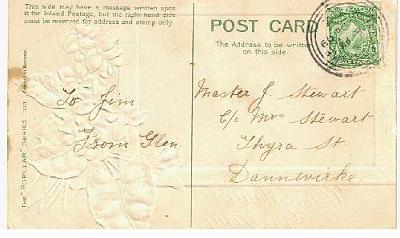 This side may have a message written upon
it for Inland Postage, but the right hand side
must be reserved for address and stamp only.
POST CARD
The Address to be written
on this side.
To Jim
From Glen
Master J. Stewart
C/o Mrs Stewart
Thyra St.
Dannevirke.
THE "POPULAR" SERIES